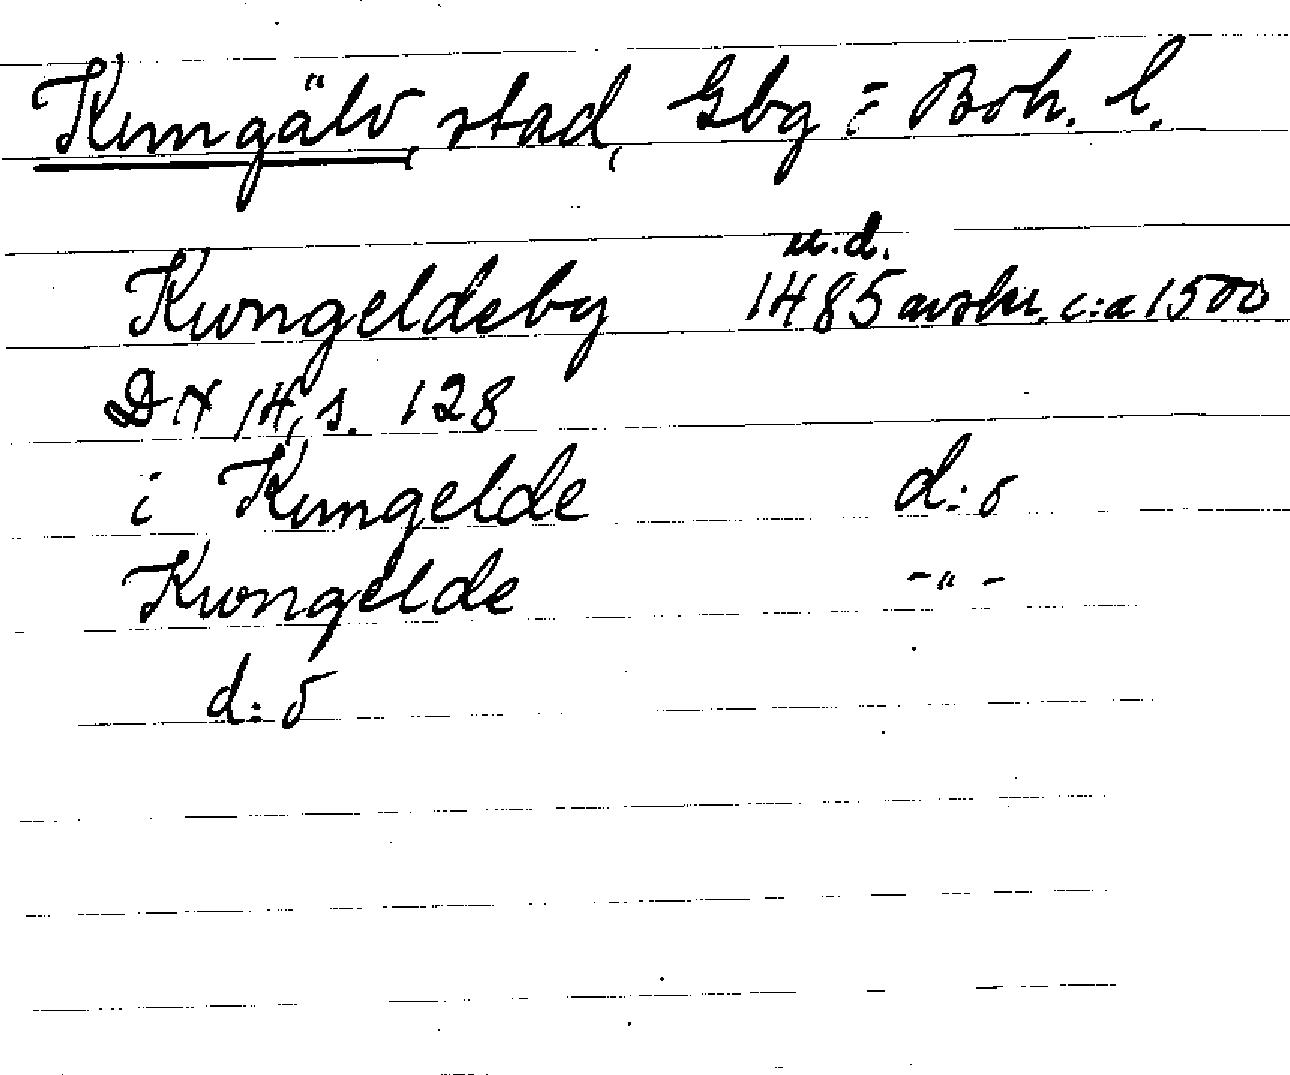 Kungälv, stad, Gbg = Boh. l.
u.d.
Kungeldeby 1485 avskr. c:a 1500
DN 14, s. 128
i Kungelde d:o
Kungelde -"-
d:o